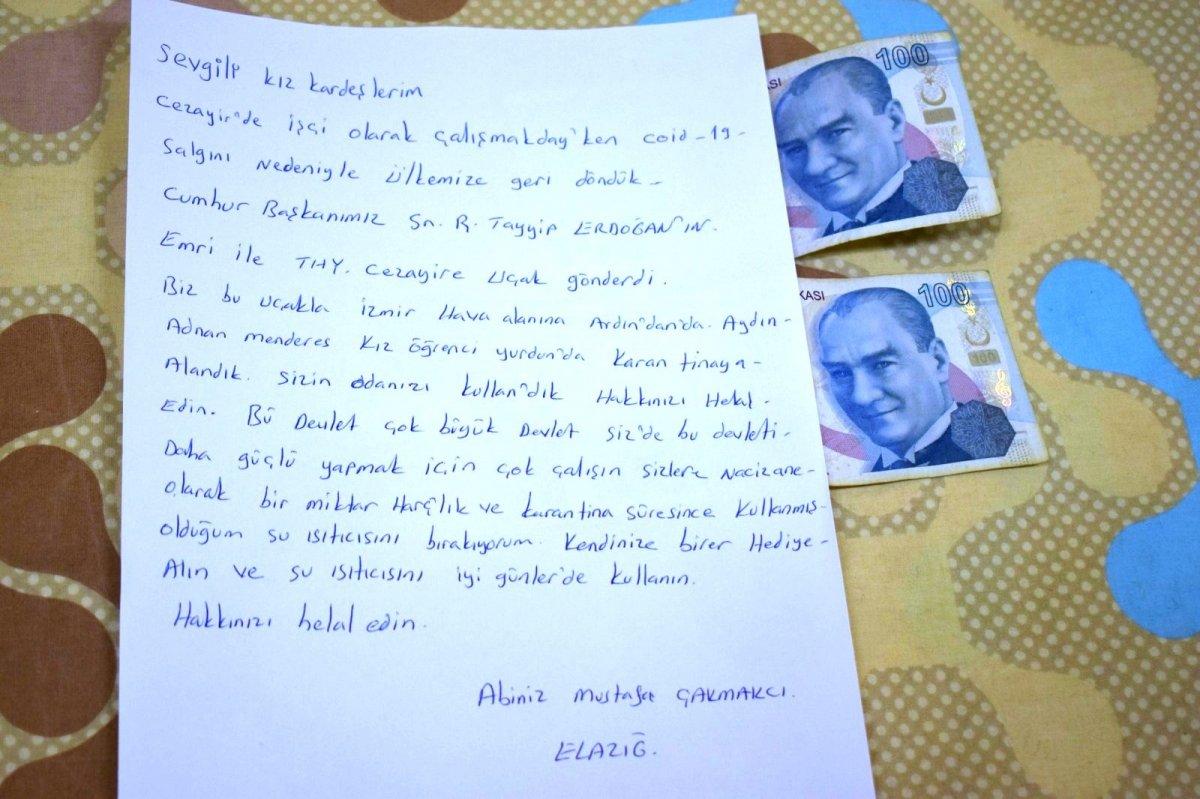 Sevgili kız kardeşlerim
Cezayir'de işçi olarak çalışmakday'ken coid-19-
Salgını nedeniyle ülkemize geri döndük-
Cumhur Başkanımız Sn. R. Tayyip ERDOĞAN'IN.
Emri ile THY. Cezayire Uçak gönderdi.
Biz bu uçakla izmir Hava alanına Ardın'dan'da. Aydın-
Adnan menderes kız öğrenci yurdun'da karantinaya-
Alandık. sizin odanızı kullan'dık Hakkınızı Helal-
Edin. Bu Devlet çok büyük Devlet siz'de bu devleti-
Daha güçlü yapmak için çok çalışın sizlere Nacizane-
olarak bir miktar Harçlık ve karantina süresince kullanmış-
olduğum su ısıtıcısını bırakıyorum. kendinize birer Hediye-
Alın ve su ısıtıcısını iyi günler'de kullanın.
Hakkınızı helal edin.
Abiniz mustafa ÇAKMAKCI.
ELAZIĞ.
100
ASI
100
KASI
100